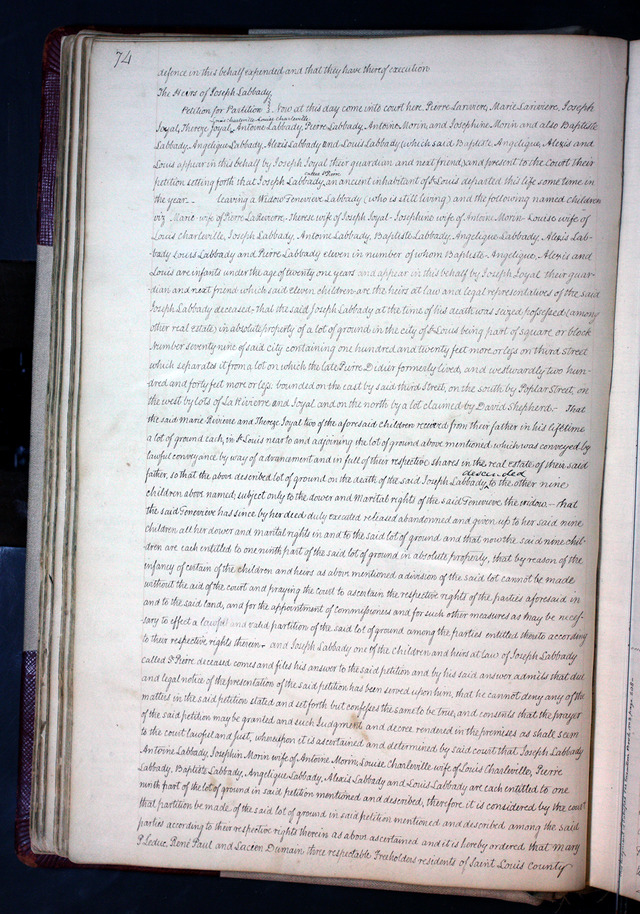 74
defence in this behalf expended and that they have thereof execution
The Heirs of Joseph Labbady,
Petition for Partition } Now at this day come into court here, Pierre Lariviere, Marie Lariviere, Joseph
Louis Charleville, Louise Charleville
Joyal, Therese Joyal, Antoine Labbady, Pierre Labbady, Antoine Morin, and Josephine Morin and also Baptiste
Labbady, Angelique Labbady, Alexis Labbady and Louis Labbady (which said Baptiste, Angelique, Alexis and
Louis appear in this behalf by Joseph Joyal their guardian and next friend) and present to the Court their
called St Pierre
petition setting forth that Joseph Labbady an ancient inhabitant of St Louis departed this life some time in
the year leaving a Widow Genevieve Labbady (who is still living) and the following named children
viz Marie wife of Pierre Lariviere, Therese wife of Joseph Joyal Josephine wife of Antoine Morin Louise wife of
Louis Charleville, Joseph Labbady, Antoine Labbady, Baptiste Labbady, Angelique Labbady, Alexis Lab-
bady Louis Labbady and Pierre Labbady eleven in number of whom Baptiste, Angelique, Alexis and
Louis are infants under the age of twenty one years and appear in this behalf by Joseph Joyal their guar-
dian and next friend which said eleven children are the heirs at law and legal representatives of the said
Joseph Labbady deceased, that the said Joseph Labbady at the time of his death was seized possessed (among
other real estate) in absolute property of a lot of ground in the city of St Louis being part of square or block
number seventy nine of said city containing one hundred and twenty feet more or less on third street
which separates it from a lot on which the late Pierre Didier formerly lived, and westwardly two hun-
dred and forty feet more or less. bounded on the east by said third Street, on the south by Poplar Street, on
the west by lots of La Rivierre and Joyal and on the north by a lot claimed by David Shepherd,- That
the said Marie Riviene and Therese Joyal two of the aforesaid children received from their father in his lifetime
a lot of ground each, in St Louis near to and adjoining the lot of ground above mentioned which was conveyed by
lawful conveyance by way of advancement and in full of their respective shares in the real estate of their said
descended
father, so that the above described lot of ground on the death of the said Joseph Labbady, to the other nine
children above named, subject only to the dower and Marital rights of the said Genevieve the widow,- that
the said Genevieve has since by her deed duly executed released abandoned and given up to her said nine
children all her dower and marital rights in and to the said lot of ground and that now the said nine chil-
dren are each entitled to one ninth part of the said lot of ground in absolute property, that by reason of the
infancy of certain of the children and heirs as above mentioned a division of the said lot cannot be made
without the aid of the court and praying the court to ascertain the respective rights of the parties aforesaid in
and to the said land, and for the appointment of commissioners and for such other measures as may be neces-
sary to effect a lawful and valid partition of the said lot of ground among the parties entitled thereto according
to their respective rights therein,- and Joseph Labbady one of the children and heirs at law of Joseph Labbady
called St Pierre deceased comes and files his answer to the said petition and by his said answer admits that due
and legal notice of the presentation of the said petition has been served upon him, that he cannot deny any of the
matters in the said petition stated and set forth but confesses the same to be true, and consents that the prayer
of the said petition may be granted and such Judgment and decree rendered in the premises as shall seem
to the court lawful and Just, whereupon it is ascertained and determined by said court that Joseph Labbady
Antoine Labbady, Josephin Morin wife of Antoine Morin, Louise Charleville wife of Louis Charleville, Pierre
Labbady, Baptiste Labbady, Angelique Labbady, Alexis Labbady and Louis Labbady are each entitled to one
ninth part of the lot of ground in said petition mentioned and described, therefore it is considered by the court
that partition be made of the said lot of ground in said petition mentioned and described among the said
parties according to their respective rights therein as above ascertained and it is hereby ordered that Mary
P. Leduc, René Paul and Lacien Dumain three respectable Freeholders residents of Saint Louis County